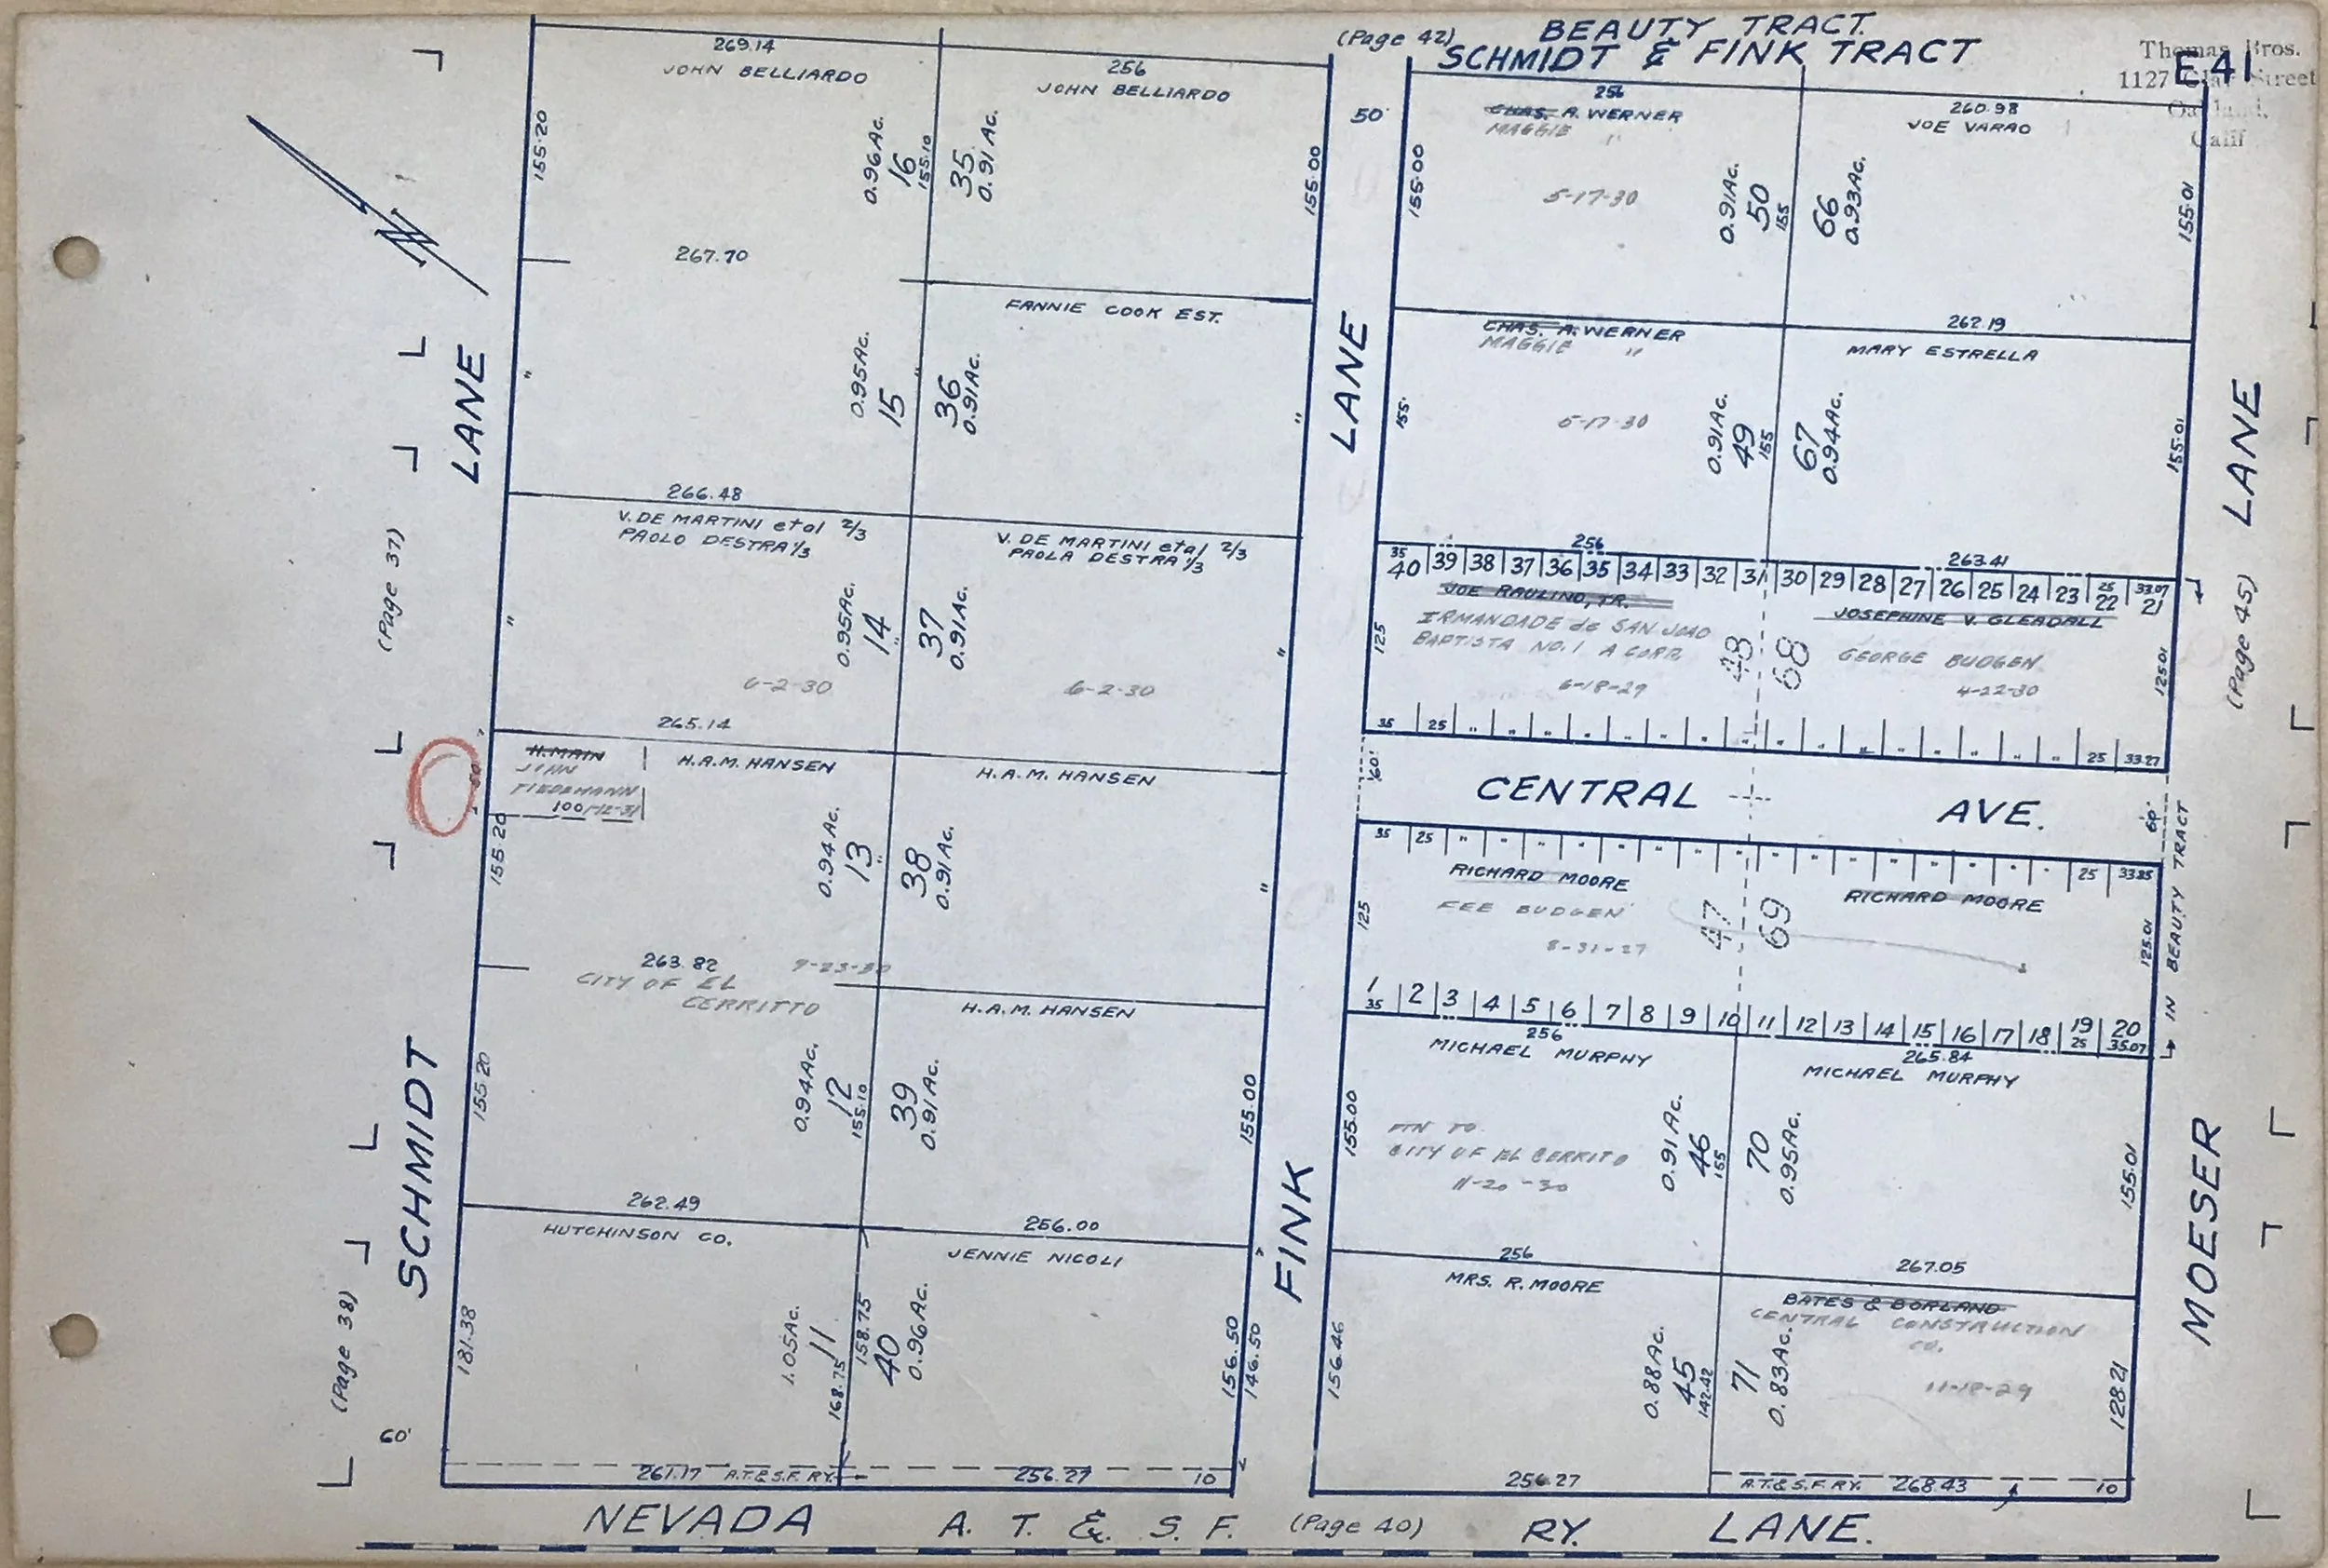 (Page 42)
BEAUTY TRACT.
SCHMIDT & FINK TRACT
E41
Thomas Bros.
1127 Street
Oakland,
Calif
N
269.14
JOHN BELLIARDO
155.20
0.96Ac.
16
155.10
256
JOHN BELLIARDO
35
0.91 Ac.
155.00
50'
256
CHAS. A. WERNER
MAGGIE "
5-17-30
155.00
0.91Ac.
50
155
260.98
JOE VARAO
66
0.93Ac.
155.01
267.70
"
0.95Ac.
15
"
FANNIE COOK EST.
36
0.91Ac.
"
CHAS. A. WERNER
MAGGIE "
5-17-30
155.
0.91Ac.
49
155
262.19
MARY ESTRELLA
67
0.94Ac.
155.01
266.48
V. DE MARTINI et al 2/3
PAOLO DESTRA 1/3
"
0.95Ac.
14
"
6-2-30
V. DE MARTINI et al 2/3
PAOLA DESTRA 1/3
37
0.91Ac.
"
6-2-30
256
263.41
35
40 39 38 37 36 35 34 33 32 31 30 29 28 27 26 25 24 23 22 21
25 33.07
JOE RAULINO, TR.
IRMANDADE de SAN JOAO
BAPTISTA NO. 1 A CORP.
6-18-29
125
48
68
JOSEPHINE V. GLEADALL
GEORGE BUDGEN
4-22-30
125.01
35 25 " " " " " " " " " " " " " " " " 25 33.27
265.14
H. MAIN
JOHN
TIEDEMANN
100 1-12-31
H.A.M. HANSEN
155.20
0.94 Ac.
13
"
H.A.M. HANSEN
38
0.91Ac.
"
60'
CENTRAL AVE.
60'
35 25 " " " " " " " " " " " " " " " " 25 33.85
RICHARD MOORE
FEE BUDGEN
8-31-27
125
47
69
RICHARD MOORE
125.01
1 2 3 4 5 6 7 8 9 10 11 12 13 14 15 16 17 18 19 20
35 25 35.07
IN BEAUTY TRACT
263.82
9-23-30
CITY OF EL
CERRITTO
155.20
0.94Ac.
12
155.10
H.A.M. HANSEN
39
0.91Ac.
155.00
256
MICHAEL MURPHY
TO
CITY OF EL CERRITO
11-20-30
155.00
0.91Ac.
46
155
265.84
MICHAEL MURPHY
70
0.95Ac.
155.01
262.49
HUTCHINSON CO.
181.38
1.05Ac.
11
168.75
158.75
256.00
JENNIE NICOLI
40
0.96Ac.
156.50
146.50
256
MRS. R. MOORE
156.46
0.88Ac.
45
142.42
267.05
BATES & BORLAND
CENTRAL CONSTRUCTION
CO.
11-18-29
71
0.83Ac.
128.21
60'
261.17 A.T.&S.F. RY.
256.27 10
256.27
A.T.&S.F. RY. 268.43 10
(Page 37)
(Page 38)
SCHMIDT LANE
FINK LANE
MOESER LANE
(Page 45)
NEVADA
A. T. & S. F. (Page 40) RY. LANE.